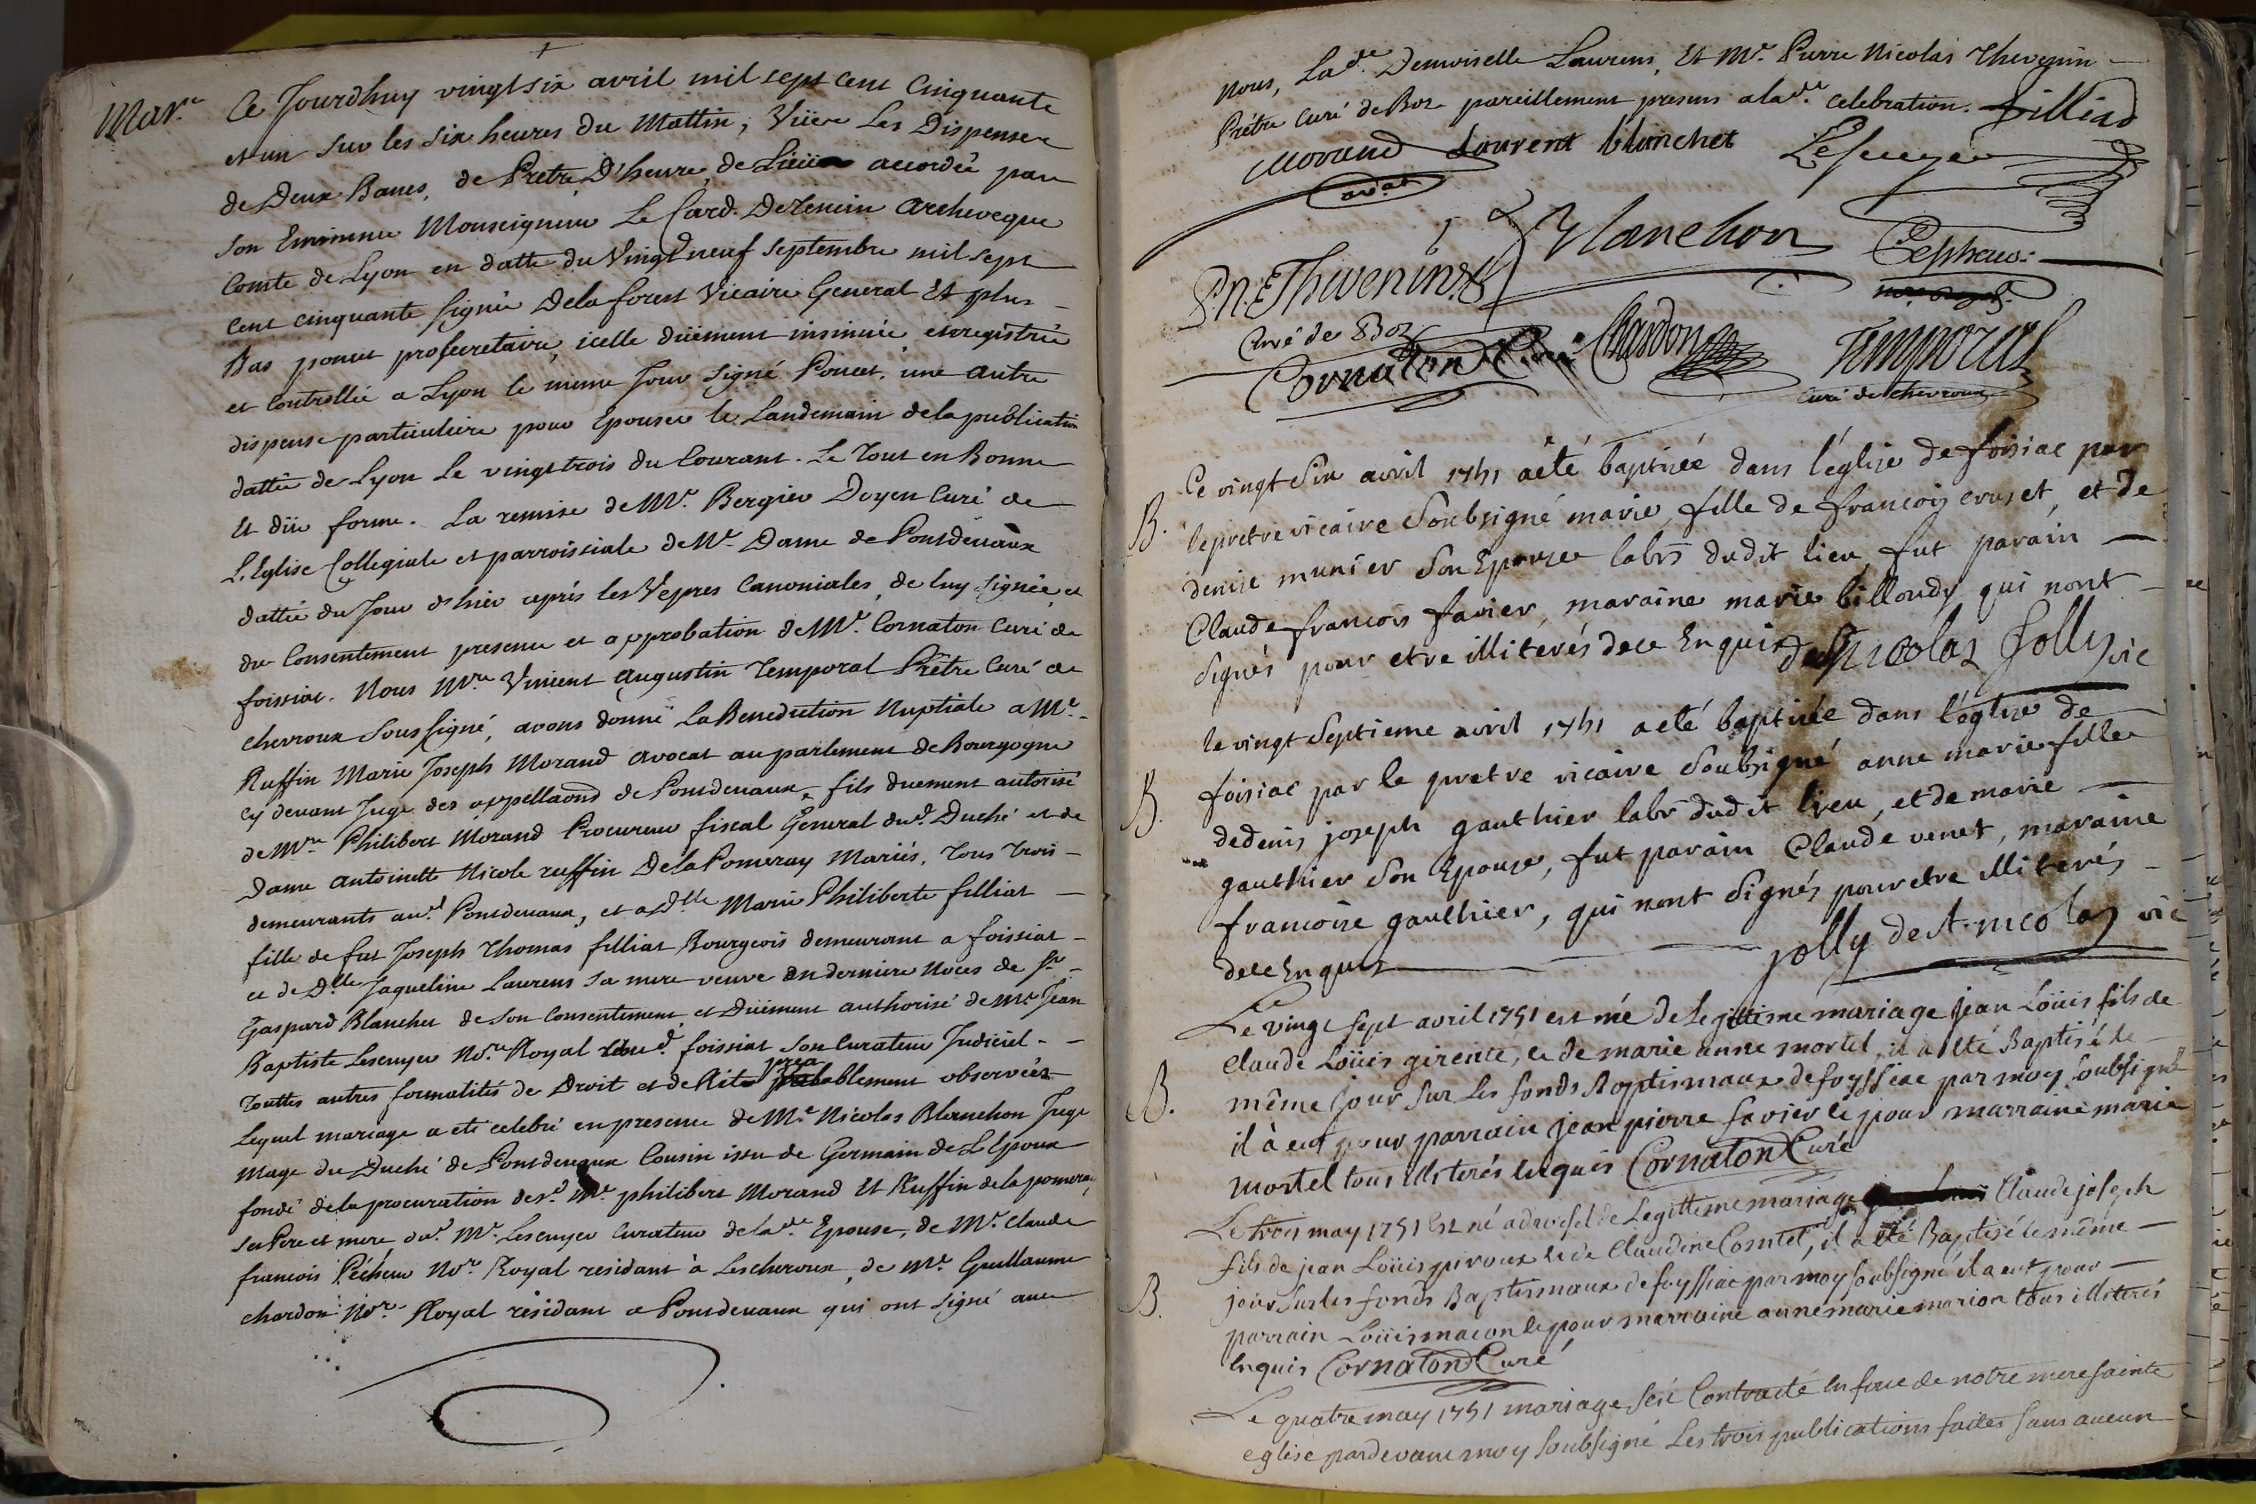 Mar.e
Ce Jourdhuy vingt six avril mil sept cent Cinquante
et un sur les six heures du Mattin, Vüe Les Dispenses
de Deux Bancs, de Prétre, D'heure, de Lieu accordée par
son Eminence Monseigneur Le Card. De Tencin Archeveque
Comte de Lyon en datte du Vingt neuf septembre mil sept
cent cinquante signée De la forest Vicaire General Et plus
Bas poncet prosecretaire, icelle düement insinuée enregistrée
et Controllée a Lyon le meme Jour signé Poncet, une autre
dispense particuliere pour Epouser le Landemain de la publication
dattée de Lyon Le vingt trois du Courant. Le Tout en Bonne
Et düe forme. La remise de Mr. Bergier Doyen Curé de
L'Eglise Collegiale et parroissiale de N.e Dame de Pontdevaux
dattée du Jour d'hier après les Vepres Canoniales, de luy signée, et
du Consentement presence et approbation de Mr. Cornaton Curé de
foissiat. Nous Mre. Vincent Augustin Temporal Prêtre Curé de
chevroux Soussigné, avons donné La Benediction Nuptiale a Me.
Ruffin Marie Joseph Morand Avocat au parlement de Bourgogne
cy devant Juge des appellaonds de Pontdevaux, fils duement autorisé
de Mre. Philibert Morand Procureur fiscal General dud. Duché et de
Dame Antoinette Nicole ruffin De la Pomeray Mariés, Tous Trois
demeurants aud. Pontdevaux, et a Dlle Marie Philiberte filliat
fille de fut Joseph Thomas filliat Bourgeois demeurant a foissiat
et de Dlle Jaqueline Laurens sa mere veuve en derniere Noces de Sr.
Gaspard Blanchet de son Consentement, et Düement authorisé de Me. Jean
Baptiste Lescuyer No.re Royal aud. foissiat son Curateur Judiciel
Touttes autres formalités de Droit et de Rite prealablement observées
Lequel mariage a eté celebré en presence de Me. Nicolas Blanchon Juge
Mage du Duché de Pontdevaux Cousin issu de Germain de L'Epoux
fondé de la procuration des d. Me. philibert Morand Et Ruffin de la pomeray
ses Pere et mere dud. Mr. Lescuyer Curateur de lad.e Epouse, de Mr. Claude
francois Pécheur No.re Royal residant à Lescheroux, de Me. Guillaume
chardon No.re Royal résidant a Pontdevaux qui ont signé avec
nous, Lad.e Demoiselle Laurens, Et Mr. Pierre Nicolas Thevenin
Prétre Curé de Boz pareillement presens a lad.e celebration. filliat
Morand Laurent blanchet Lescuyer
avat
Blanchon
Pescheur
P. N. Thivenin
Curé de Boz
Cornaton Curé Chardon Temporal
Curé de chevroux
B.
Ce vingt Six avril 1751 a eté baptisée dans l'église de foisiac par
le pretre vicaire Soubsigné marie, fille de francois cruset, et de
denise munier Son Epouze labrs dudit lieu, fut parain
Claude francois favier, maraine marie billoudy qui nont
Signés pour etre illiterés dece Enquis de St nicolas Jolly vic
B.
le vingt Septieme avril 1751 a eté baptisée dans l'église de
foisiac par le pretre vicaire Soubsigné anne marie fille
de denis joseph gauthier labr dudit lieu, et de marie
gauthier Son Epouze, fut parain Claude venet, maraine
francoise gaulthier, qui nont Signés pour etre illiterés
dece Enquis jolly de st. nicolas vic
B.
Le vingt sept avril 1751 est né de Legittime mariage jean Loüis fils de
Claude Loüis girente, et de marie anne mortel, il a eté Baptisé le
même jour sur Les fonds Baptismaux de foyssiac par moy soubsigné
il à eut pour parrain jean pierre favier et pour marraine marie
mortel tous illiterés enquis Cornaton Curé
B.
Le trois may 1751 Est né de Legittime mariage Claude joseph
fils de jean Loüis piroux et de Claudine Comtet, il a eté Baptisé le même
jour sur les fonds Baptismaux de foyssiac par moy soubsigné il a eut pour
parrain Loüis macon et pour marraine anne marie marion tous illiterés
enquis Cornaton Curé
Le quatre may 1751 mariage seté Contracté en face de notre mere sainte
eglise pardevant moy soubsigné Les trois publications faites sans aucun